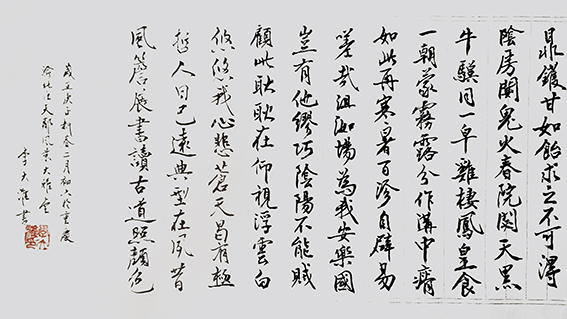 鼎鑊甘如飴求之不可得
陰房闃鬼火春院閟天黑
牛驥同一皁雞棲鳳皇食
一朝蒙霧露分作溝中瘠
如此再寒暑百沴自辟易
嗟哉沮洳場為我安樂國
豈有他繆巧陰陽不能賊
顧此耿耿在仰視浮雲白
悠悠我心悲蒼天曷有極
哲人日已遠典型在夙昔
風簷展書讀古道照顏色
歲在庚子新春二月初六於重慶
渝北江天都風景大雅堂
李大 書